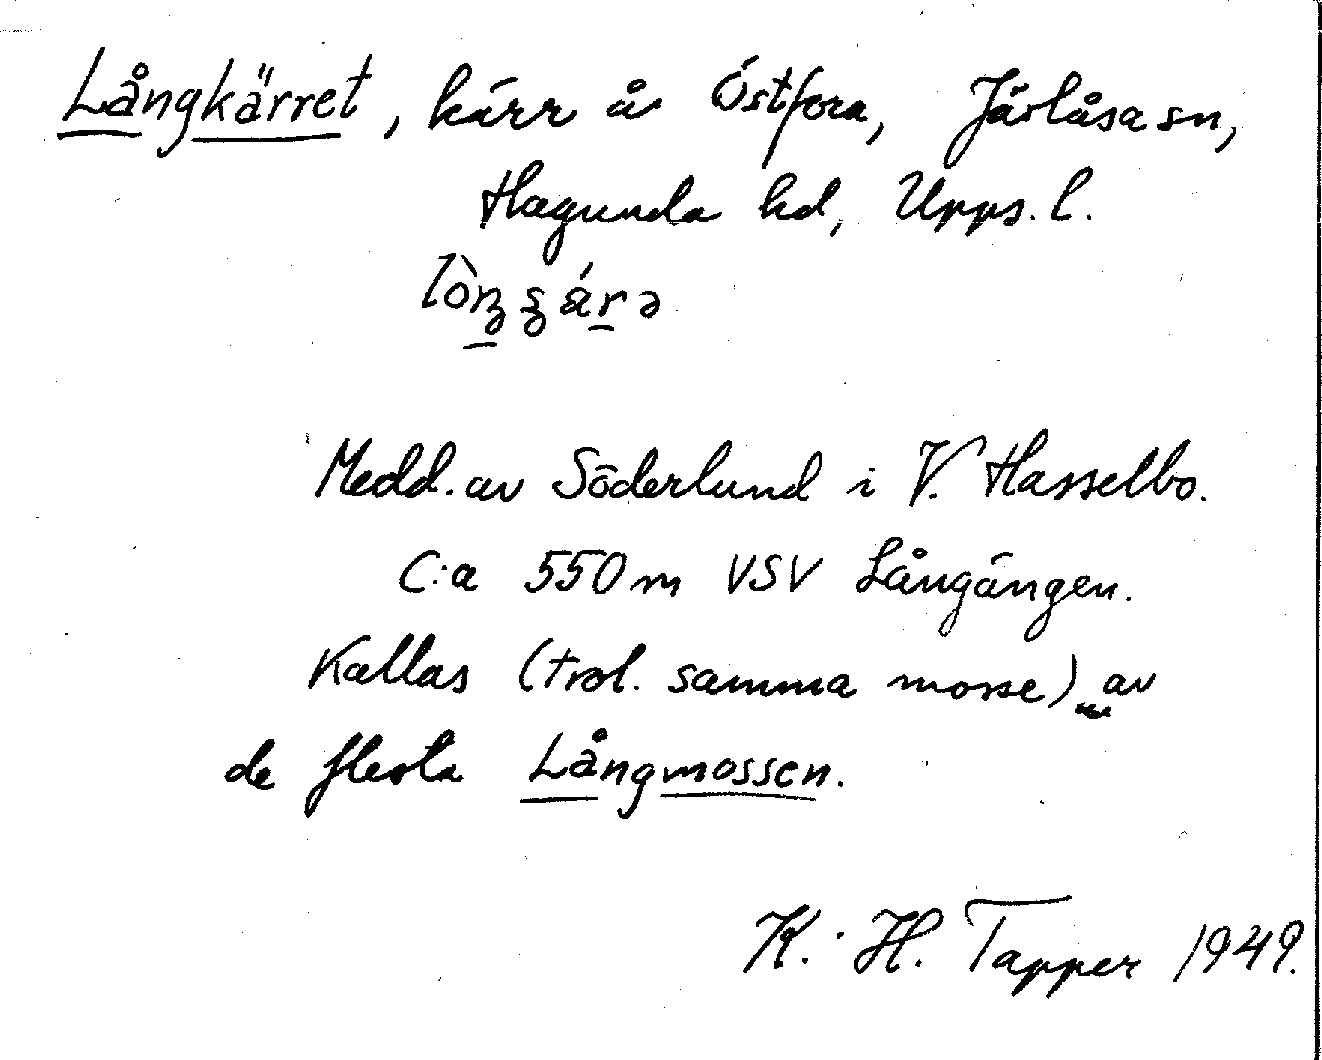 Långkärret, kärr å Östfora, Järlåsa sn,
Hagunda hd, Upps. l.
Medd. av Söderlund i V. Hasselbo.
C:a 550 m VSV Långängen.
Kallas (trol. samma mosse) av
de flesta Långmossen.
K. H. Tapper 1949.